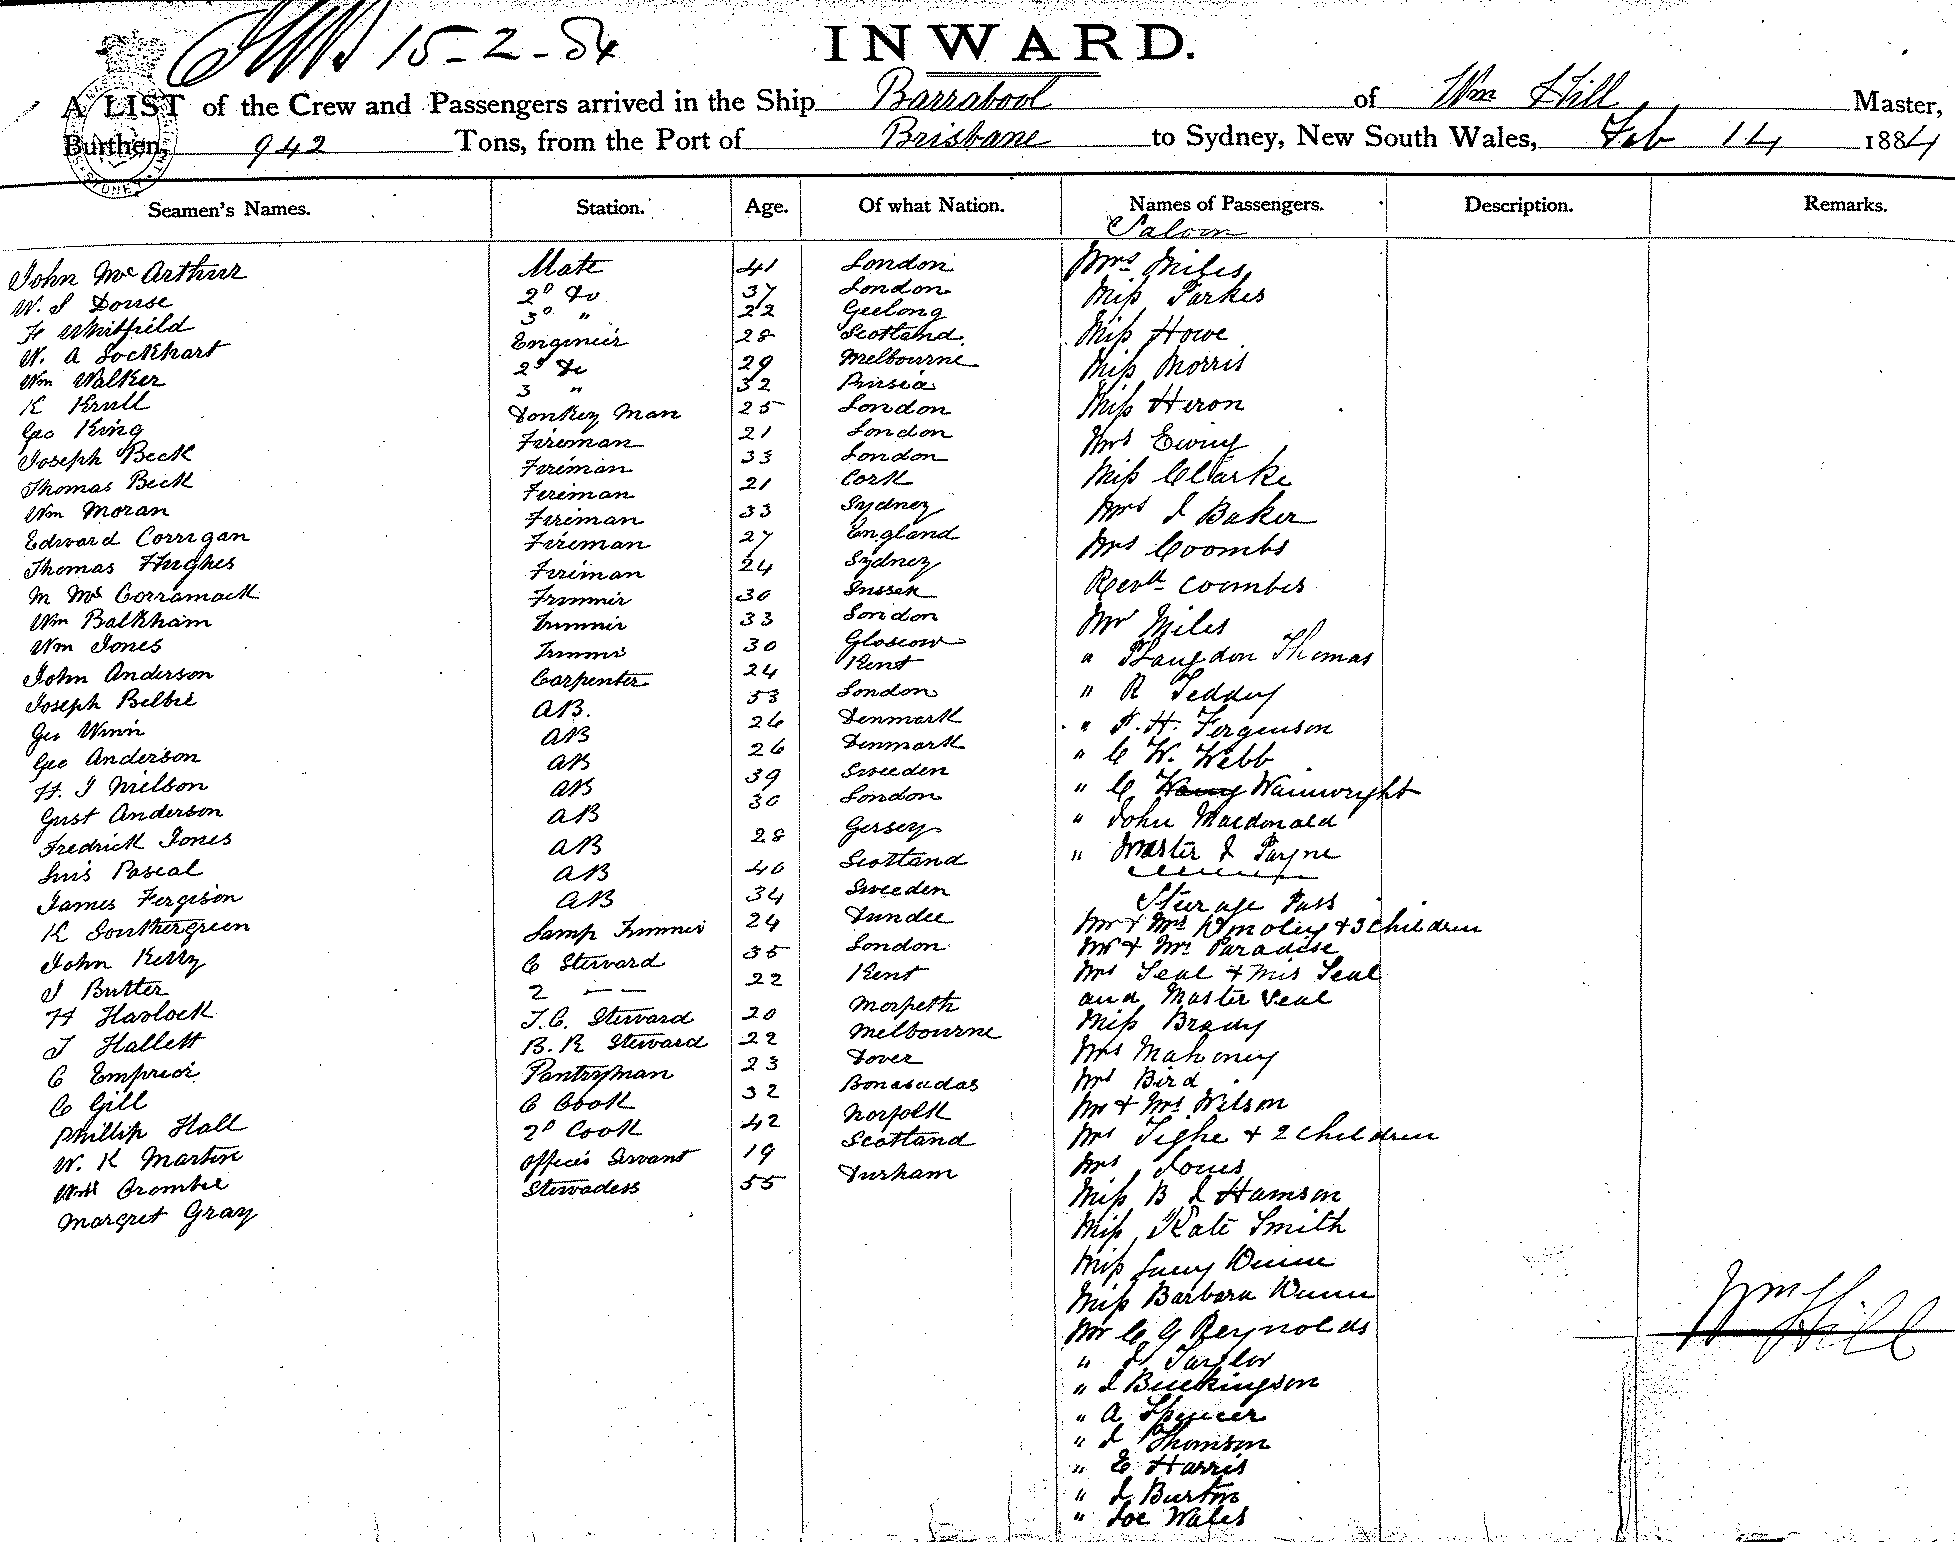 15-2-84
INWARD.
A LIST of the Crew and Passengers arrived in the Ship Barrabool of Wm Hill Master,
Burthen, 942 Tons, from the Port of Brisbane to Sydney, New South Wales, Feb 14 1884
Seamen's Names. Station. Age. Of what Nation. Names of Passengers. Description. Remarks.
Saloon
John McArthur Mate 41 London Mrs Miles
W. J Douse 2d Do 37 London Miss Parkes
F Whitfield 3d " 22 Geelong Miss Howe
W. A Lockhart Engineer 28 Scotland Miss Morris
Wm Walker 2d Do 29 Melbourne Miss Heron
K Krull 3 " 32 Prusia Mrs Ewing
Geo King Donkey Man 25 London Miss Clarke
Joseph Beck Fireman 21 London Mrs J Baker
Thomas Beck Fireman 33 London Mrs Coombs
Wm Moran Fireman 21 Cork Revd Coombes
Edward Corrigan Fireman 33 Sydney Mr Miles
Thomas Hughes Fireman 27 England " Langdon Thomas
M McCorramack Fireman 24 Sydney " R Feddy
Wm Balkham Trimmer 30 Sussex " F. H. Fergusson
Wm Jones Trimmer 33 London " C W. Webb
John Anderson Trimmer 30 Gloscow " C Wainwright
Joseph Belbie Carpenter 24 Kent " John Macdonald
Geo Winn AB. 53 London " Master J Payne
Geo Anderson AB 26 Denmark Steerage Pass
H. J Nielson AB 26 Denmark Mr & Mrs & 3 children
Gust Anderson AB 39 Sweeden Mr & Mrs Paradise
Fredrick Jones AB 30 London Mrs Seal & Mis Seal
Luis Pascal AB 28 Gersey and Master Seal
James Fergison AB 40 Scotland Miss Brady
K Southergreen AB 34 Sweeden Mrs Mahoney
John Kelly Lamp Trimmer 24 Dundee Mrs Bird
J Butler C Steward 35 London Mr & Mrs Wilson
H Havlock 2 — — 22 Kent Mrs Tighe & 2 children
J Hallett F.C. Steward 20 Morpeth Mrs Jones
C Emprior B. R Steward 22 Melbourne Miss B J Hamson
C Gill Pantryman 23 Dover Miss Kate Smith
Phillip Hall C Cook 32 Miss Lucy Dunn
W. K Martin 2d Cook 42 Norfolk Miss Barbara Dunn
Wm Crombie Offices Servant 19 Scotland Mr C G Reynolds
Margret Gray Stewadess 55 Durham " J Taylor
" J Buckingson
" A Spencer
" J Thomson
" E Harris
" J Burton
" Joe Wales
Wm Hill